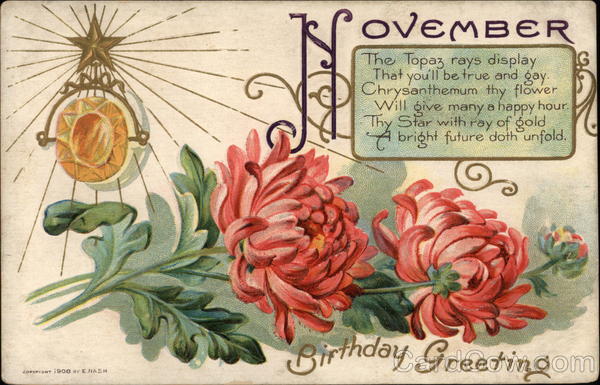 NOVEMBER
The Topaz rays display
That you'll be true and gay.
Chrysanthemum thy flower
Will give many a happy hour.
Thy Star with ray of gold
A bright future doth unfold.
Birthday Greeting
CardCow.com
COPYRIGHT 1908 BY E. NASH